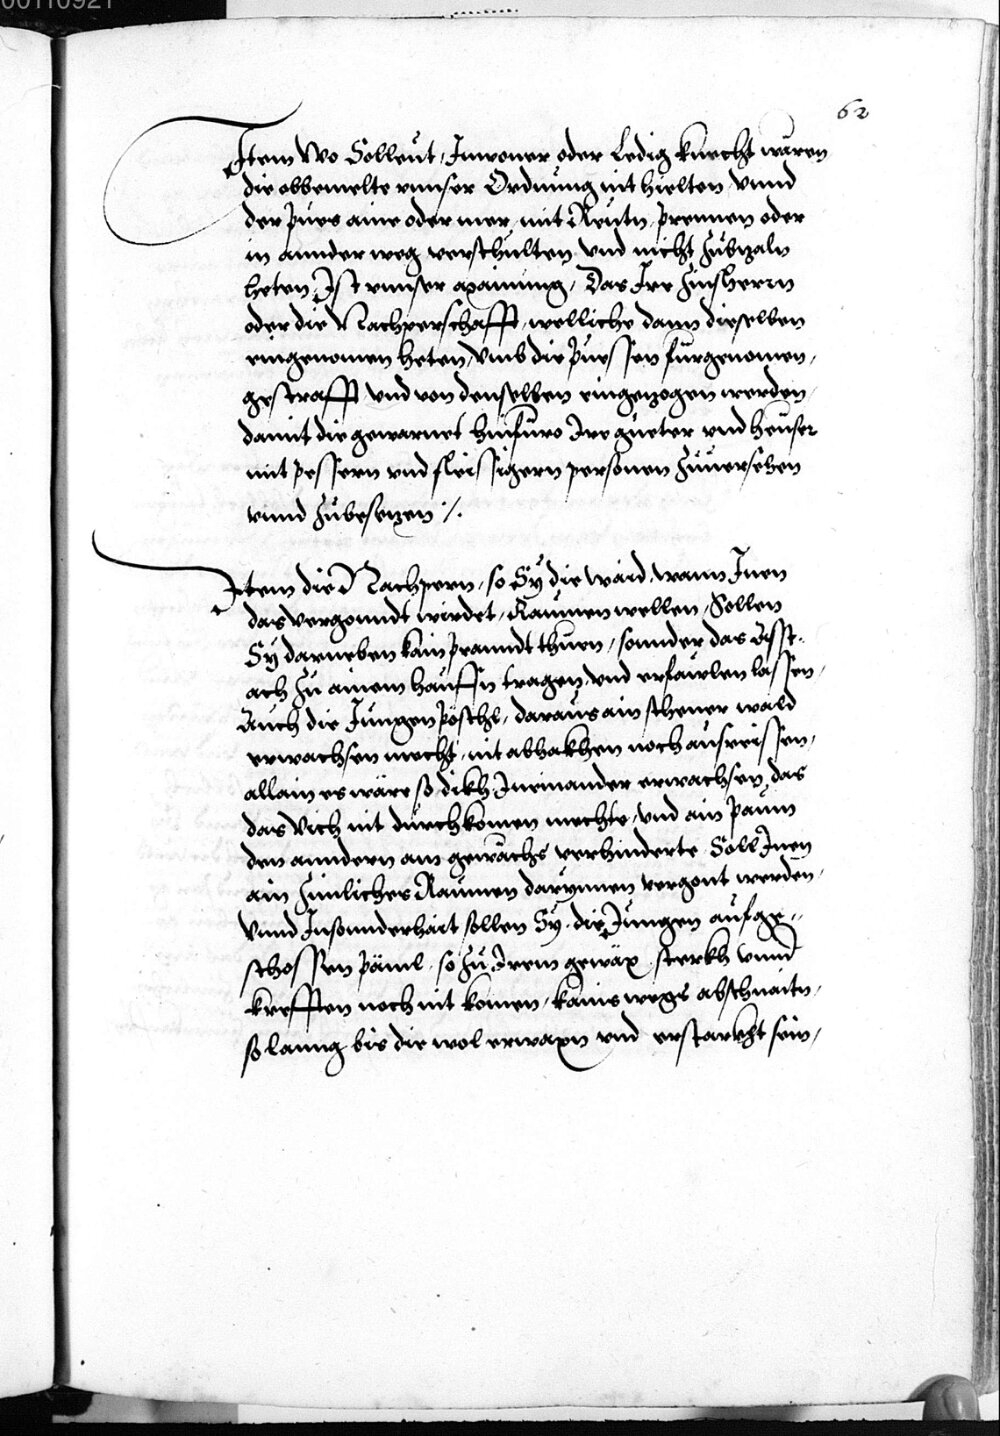 00110921
62
Item Wo Solleut, Inwoner oder Ledig knecht wären
die obbemelte vnnser Ordnung nit hielten vnnd
der pües aine oder mer, mit Reutn, prennen oder
in annder weg verschulten vnd nicht zubzaln
heten, Ist vnnser mainung, Das Ire Zinsherrn
oder die Nachperschafft, welliche dann dieselben
eingenomen heten, vmb die püessen fürgenomen,
gestrafft vnd von denselben eingezogen werden,
damit die gewarnet hinfüro Ire güeter vnd heuser
mit pessern vnd fleissigern personen zuuersehen
vnnd zubesetzen ./.
Item die Nachpern, so Sy die waid, wann Inen
das vergonndt wirdet, Raumen wellen, Sollen
Sy darneben kain pranndt thuen, sonnder das Asst-
ach zu ainem hauffn tragen, vnd erfaulen lassen,
Auch die Jungen pöschl, daraus ain schener wald
erwachsen mecht, nit abhakhen noch ausreissen,
allain es wäre so dikh Ineinander erwachsen, das
das Vich nit durchkomen mechte, vnd ain paum
den anndern am gewächs verhinderte. Soll Inen
ain zimliches Raumen darynnen vergont werden,
Vnnd Insonnderhait sollen Sy die Jungen aufge-
schossen päml, so zu Irem gewäx, sterkh vnnd
krefften noch nit komen, kains wegs abschnaitn,
so lanng bis die wol erwaxn vnd erstarkht sein,